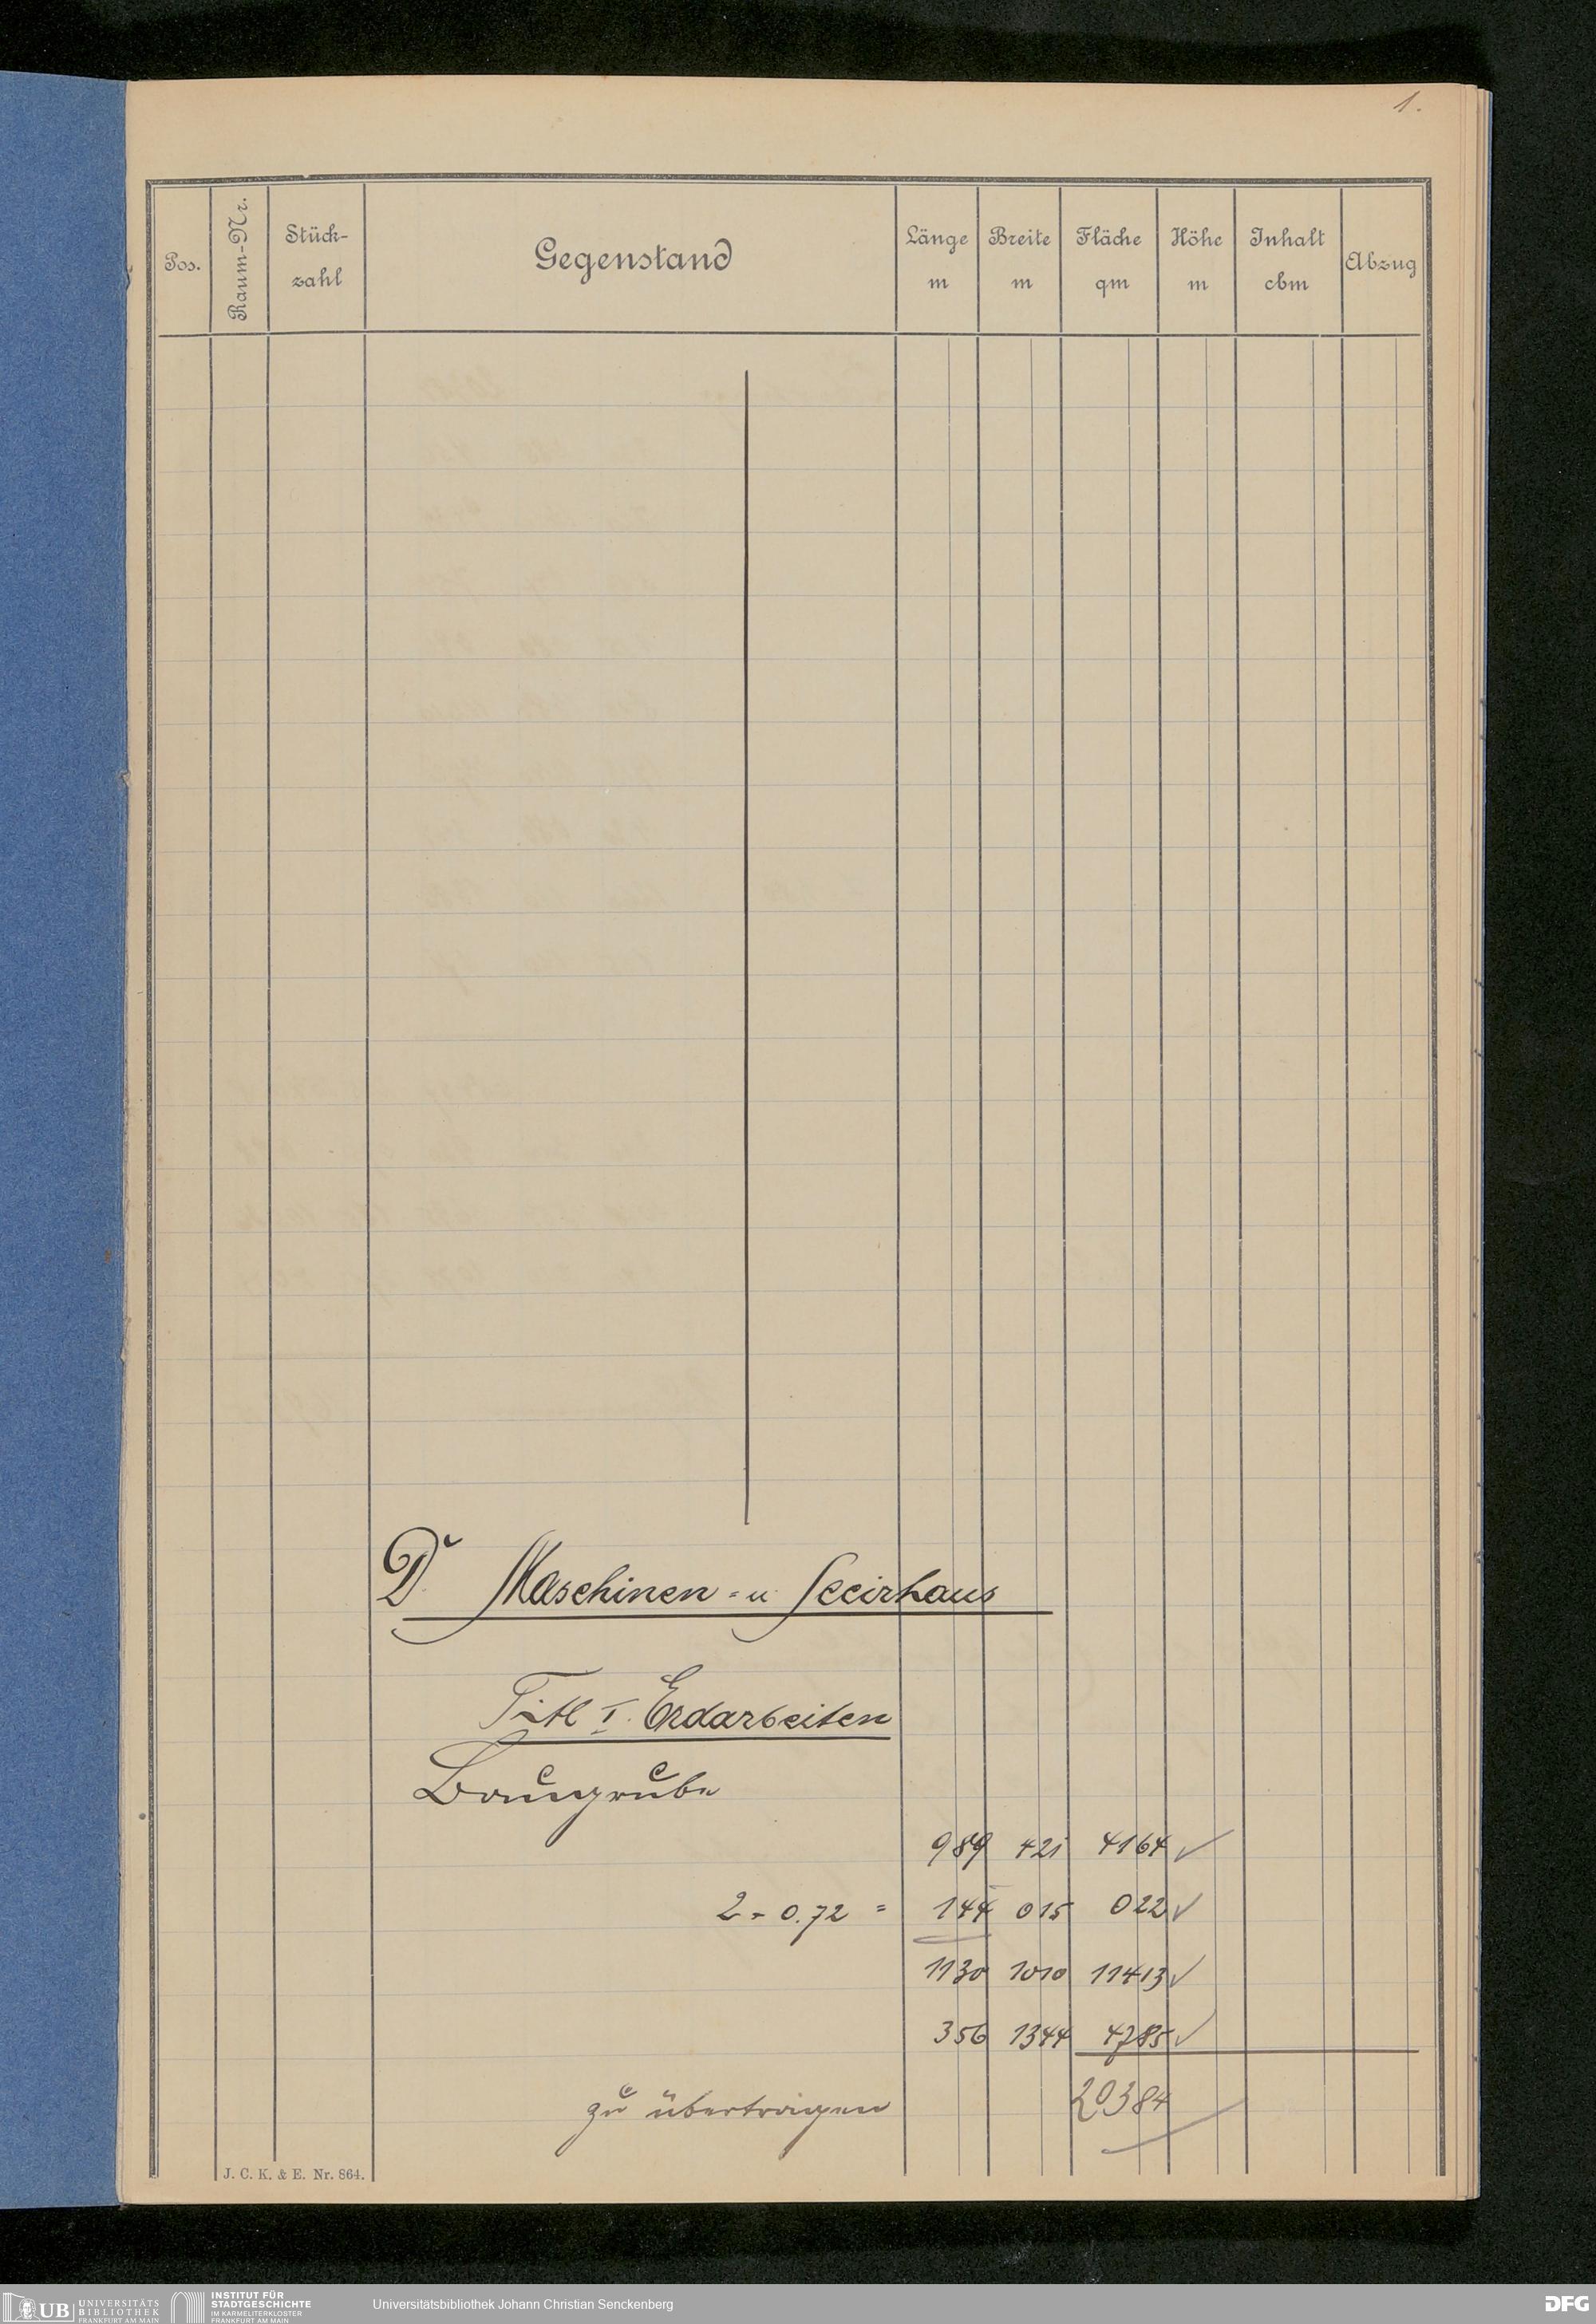 1.
Pos.
Raum-Nr.
Stück-
zahl
Gegenstand
Länge
m
Breite
m
Fläche
qm
Höhe
m
Inhalt
cbm
Abzug
D. Maschinen- u. Secirhaus
Titl I. Erdarbeiten
Baugrube
989 421 4164 ✓
2 · 0.72 = 144 015 022 ✓
1130 1010 11413 ✓
356 1344 4785 ✓
zu übertragen 20384
J. C. K. & E. Nr. 864.
UB UNIVERSITÄTS
BIBLIOTHEK
FRANKFURT AM MAIN
INSTITUT FÜR
STADTGESCHICHTE
IM KARMELITERKLOSTER
FRANKFURT AM MAIN
Universitätsbibliothek Johann Christian Senckenberg
DFG